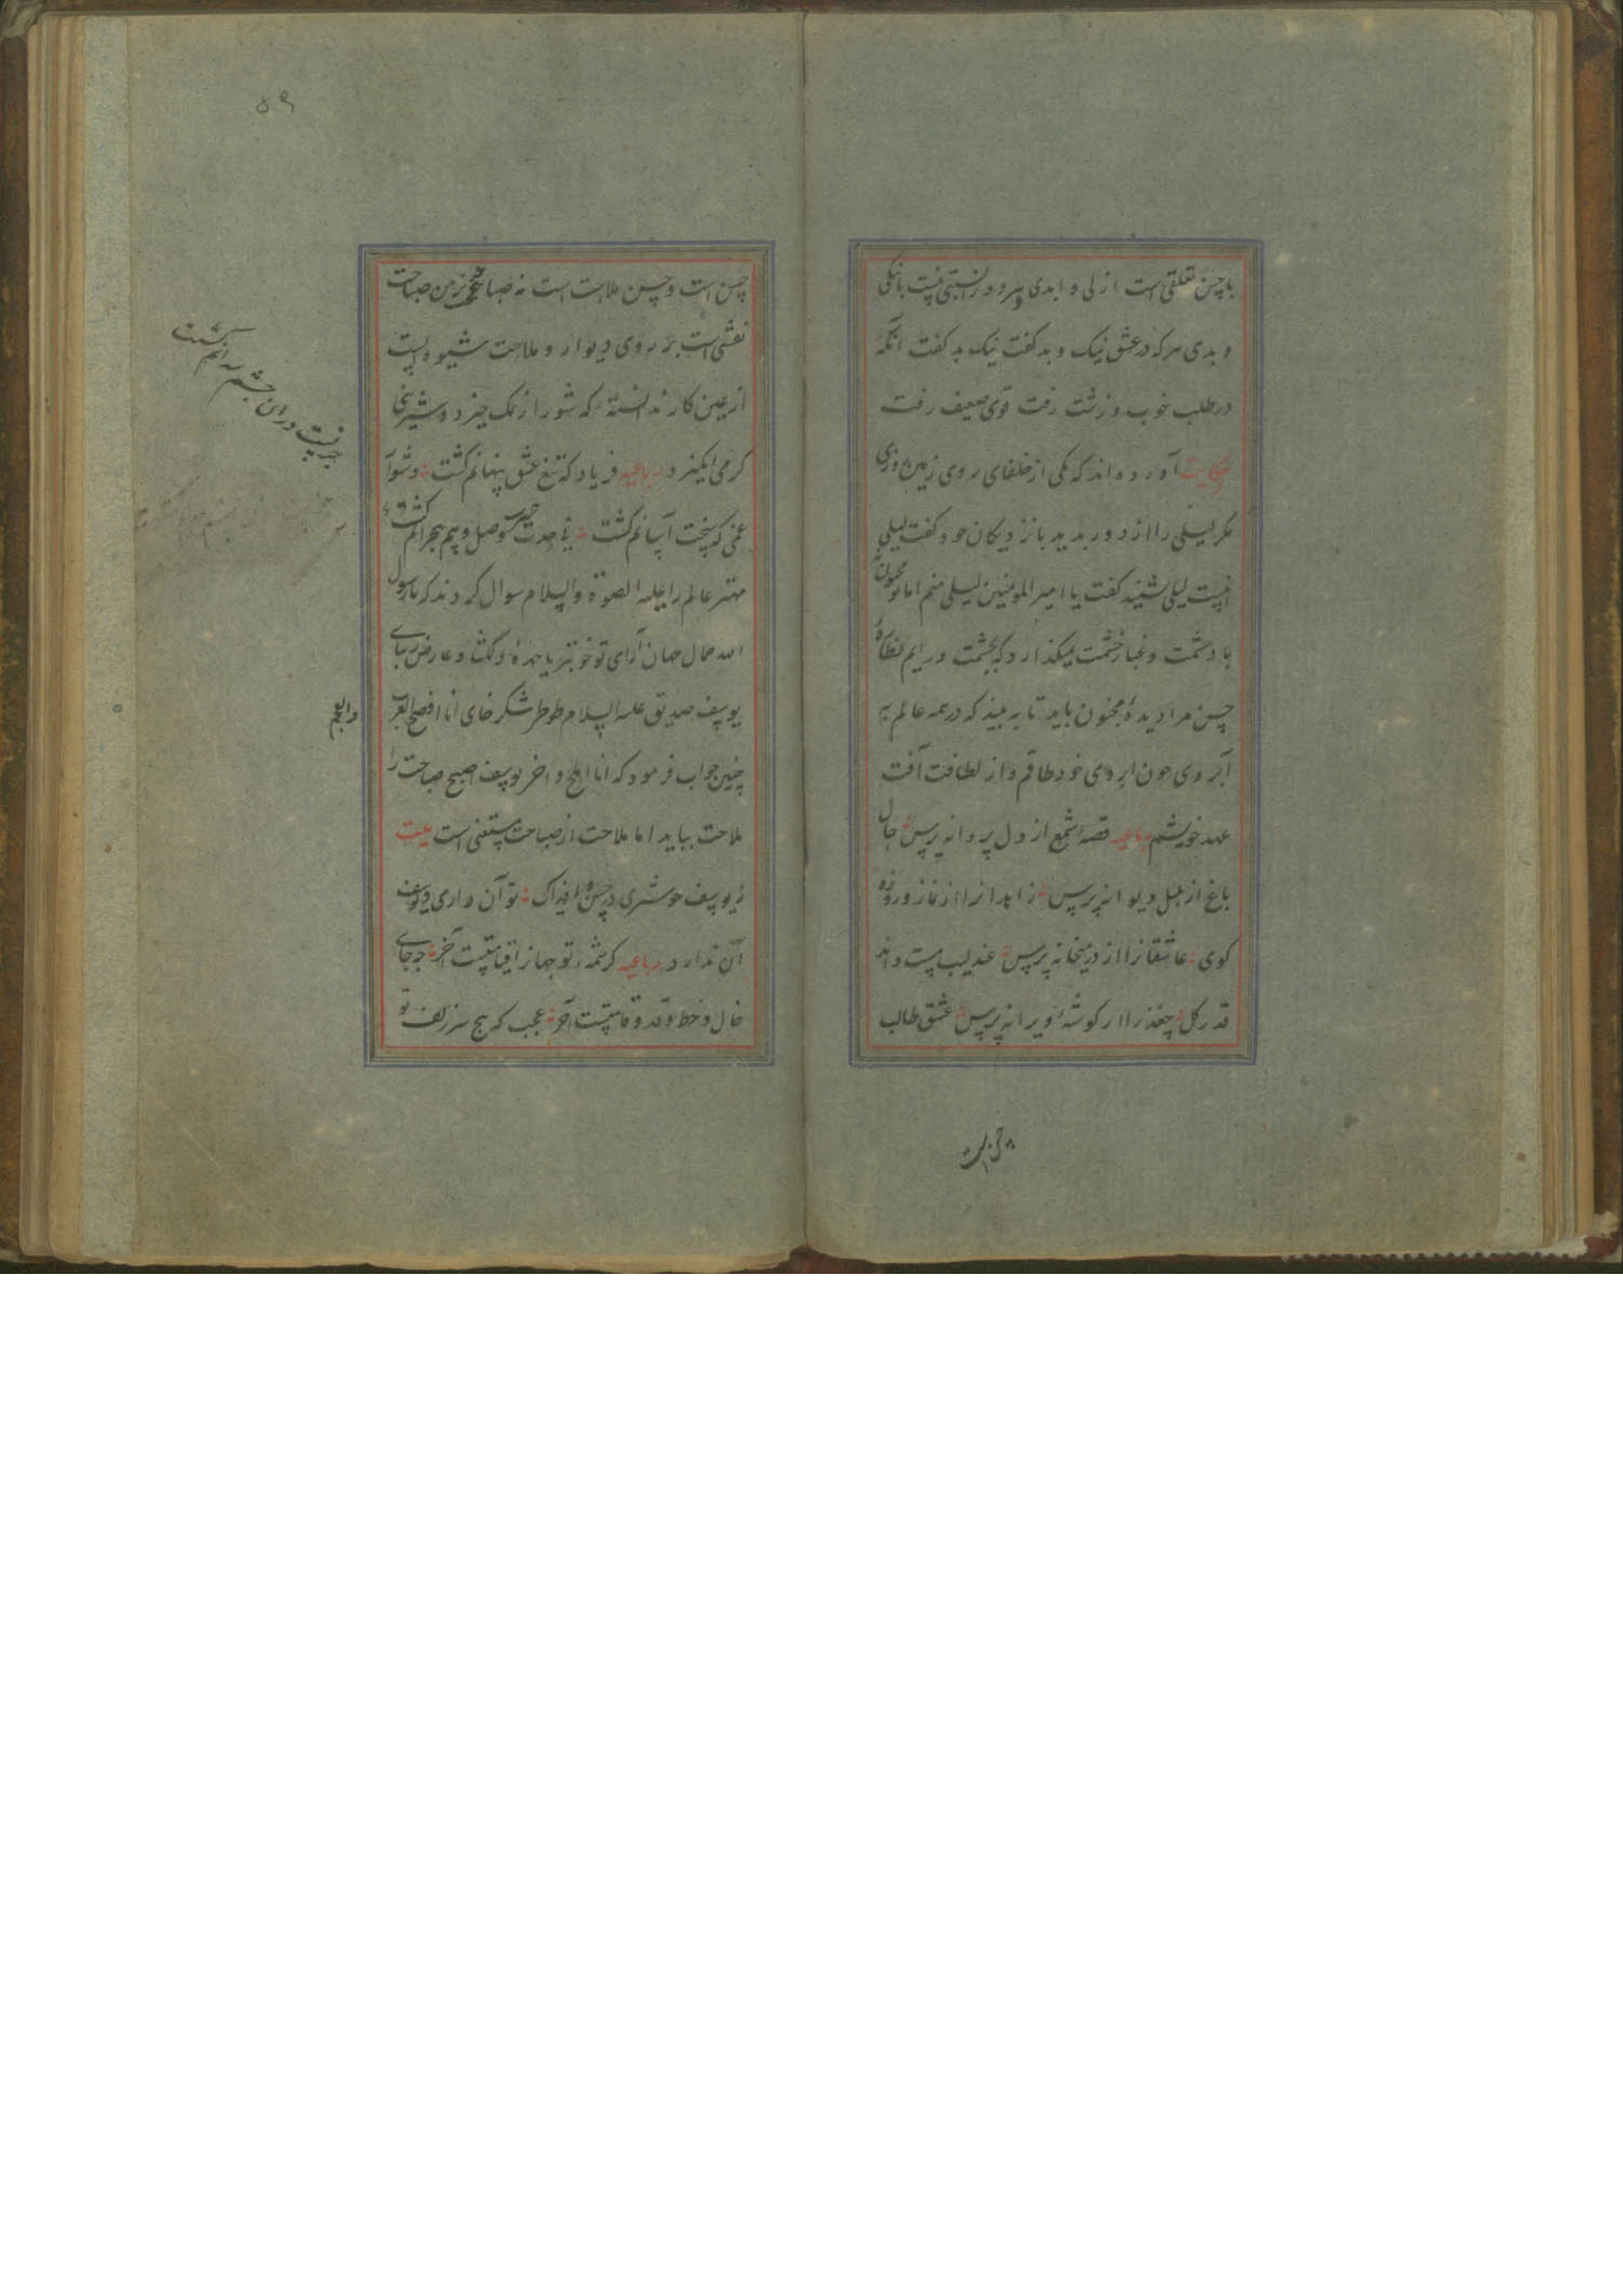 با حسن تعلقی است ازلی و ابدی و مرد و زن نسبتی نیست با نیکی
و بدی هر که در عشق نیک و بد گفت نیک بد گفت آنکه
در طلب خوب و زشت رفت قوی ضعیف رفت
حکایت آورده‌اند که یکی از خلفای روی زمین روزی
مکر لیلی را از دور بدید با نزدیکان خود گفت لیلی
اینست لیلی شنید گفت یا امیر المومنین لیلی منم اما تو مجنون نه
باد حشمت و غبار خشمت نمیکذارد که بچشمت درایم نظاره
حسن مرا دیدهٔ مجنون باید تا به بیند که در همه عالم به
ابروی چون ابروی خود طاقم و از لطافت آفت
عهد خویشم رباعیه قصه شمع از دل پروانه پرس حال
باغ از بلبل دیوانه پرس زاهدانرا از نماز و روزه
کوی عاشقانرا از در میخانه پرس عندلیب مست داند
قدر کل چغد را از کوشه ویرانه پرس عشق طالب
حسن است
۵۹
حسن است و حسن ملاحت است نه صباحت زمن صباحت
نقشی است بر روی دیوار و ملاحت شیوه ایست
از عین کار ندانسته که شور از نمک خیزد و شیرینی
کرمی انکیزد رباعیه فریاد که تیغ عشق پنهانم کشت دشوار
غمی که سخت آسانم کشت نی حدت وصل و بیم هجرانم کشت
چیزیست در ان چشم که آنم کشت
مهتر عالم را علیه الصلوة والسلام سوال کردند که یا رسول
الله جمال جهان آرای تو خوبتر یا چهره دلکشا و عارض زیبای
یوسف صدیق علیه السلام طوطی شکر خای انا افصح العرب
والعجم
چنین جواب فرمود که انا املح و اخی یوسف اصبح صباحت را
ملاحت بباید اما ملاحت از صباحت مستغنی است بیت
ز یوسف خوشتری در حسن افزاک تو آن داری و یوسف
آن ندارد رباعیه کرشمه تو جهانرا قیامتیست آخر چه جای
خال و خط و قد و قامتیست آخر عجب که هیچ سر زلف تو